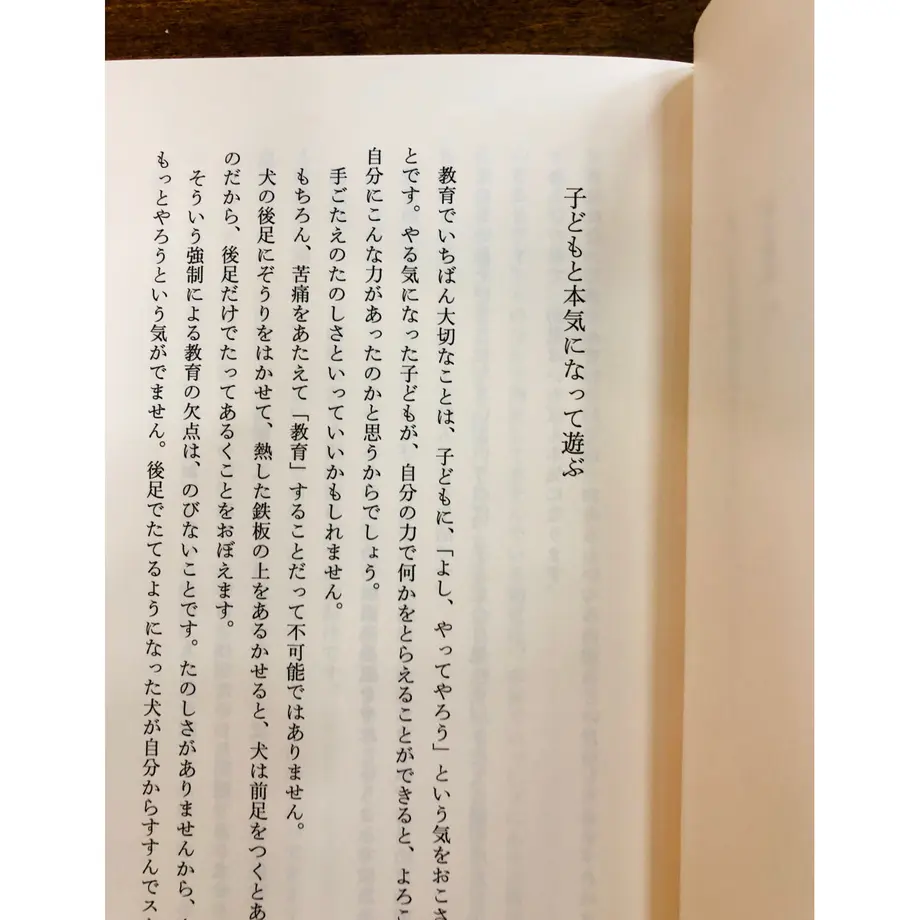 子どもと本気になって遊ぶ
教育でいちばん大切なことは、子どもに、「よし、やってやろう」という気をおこさ
とです。やる気になった子どもが、自分の力で何かをとらえることができると、よろこ
自分にこんな力があったのかと思うからでしょう。
手ごたえのたのしさといっていいかもしれません。
もちろん、苦痛をあたえて「教育」することだって不可能ではありません。
犬の後足にぞうりをはかせて、熱した鉄板の上をあるかせると、犬は前足をつくとあ
のだから、後足だけでたってあるくことをおぼえます。
そういう強制による教育の欠点は、のびないことです。たのしさがありませんから、
もっとやろうという気がでません。後足でたてるようになった犬が自分からすすんでス